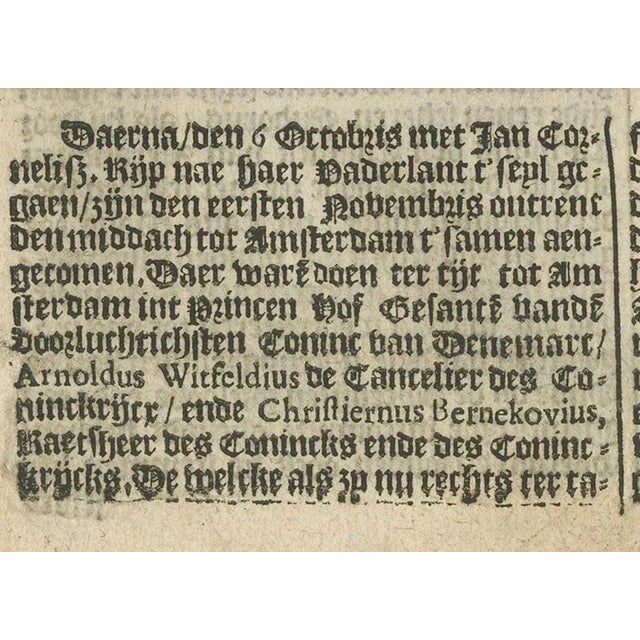 Daerna/den 6 Octobris met Jan Cor-
nelisz. Rijp nae haer Vaderlant t'seyl ge-
gaen/zijn den eersten Novembris ontrent
den middach tot Amsterdam t'samen aen-
gecomen. Daer warẽ doen ter tijt tot Am
sterdam int Princen Hof Gesantẽ vandẽ
doorluchtichsten Coninc van Denemarc/
Arnoldus Witfeldius de Cancelier des Co-
ninckrijcx/ende Christiernus Bernekovius,
Raetsheer des Conincks ende des Coninc-
krijcks. De welcke als zy nu rechts ter ta-